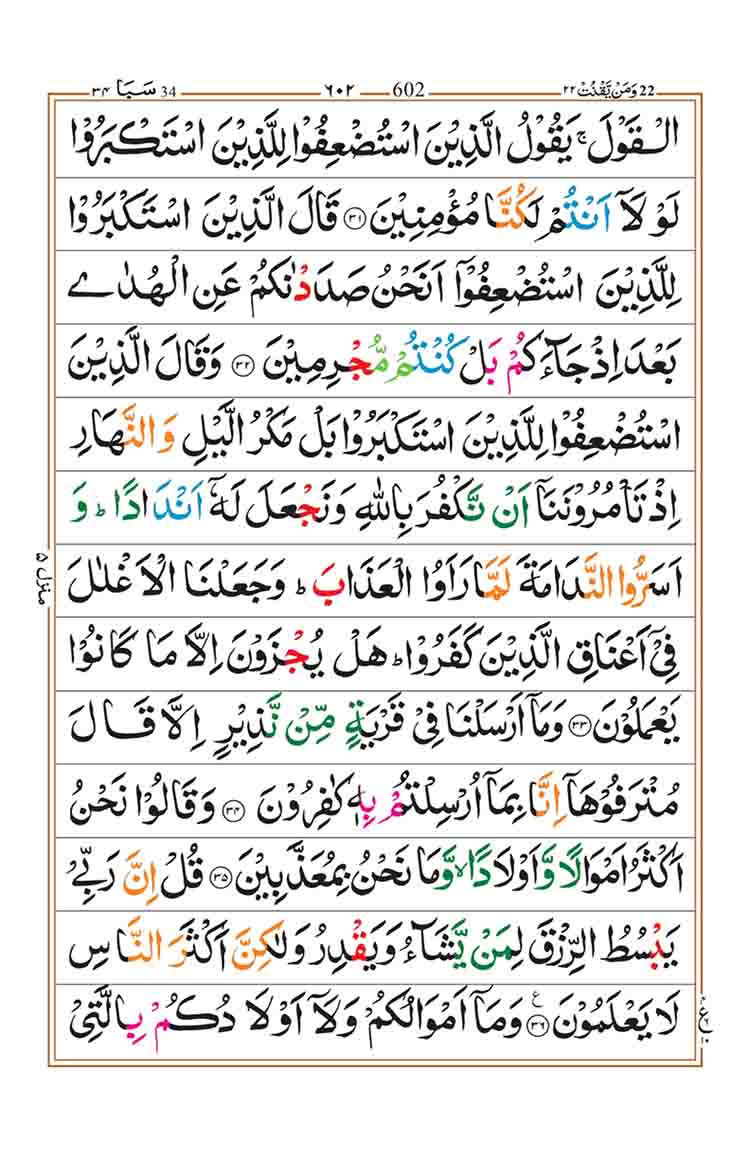 ٣٤ سَبَا 34 ٦٠٢ 602 ٢٢ وَمَنْ يَّقْنُتْ 22
الْقَوْلَ ۚ يَقُوْلُ الَّذِيْنَ اسْتُضْعِفُوْا لِلَّذِيْنَ اسْتَكْبَرُوْا
لَوْ لَاۤ اَنْتُمْ لَكُنَّا مُؤْمِنِيْنَ ۝٣١ قَالَ الَّذِيْنَ اسْتَكْبَرُوْا
لِلَّذِيْنَ اسْتُضْعِفُوْۤا اَنَحْنُ صَدَدْنٰكُمْ عَنِ الْهُدٰى
بَعْدَ اِذْ جَآءَكُمْ بَلْ كُنْتُمْ مُّجْرِمِيْنَ ۝٣٢ وَقَالَ الَّذِيْنَ
اسْتُضْعِفُوْا لِلَّذِيْنَ اسْتَكْبَرُوْا بَلْ مَكْرُ الَّيْلِ وَالنَّهَارِ
اِذْ تَاْمُرُوْنَنَاۤ اَنْ نَّكْفُرَ بِاللّٰهِ وَنَجْعَلَ لَهٗۤ اَنْدَادًا ؕ وَ
اَسَرُّوا النَّدَامَةَ لَمَّا رَاَوُا الْعَذَابَ ؕ وَجَعَلْنَا الْاَغْلٰلَ
فِيْۤ اَعْنَاقِ الَّذِيْنَ كَفَرُوْا ؕ هَلْ يُجْزَوْنَ اِلَّا مَا كَانُوْا
يَعْمَلُوْنَ ۝٣٣ وَمَاۤ اَرْسَلْنَا فِيْ قَرْيَةٍ مِّنْ نَّذِيْرٍ اِلَّا قَالَ
مُتْرَفُوْهَاۤ اِنَّا بِمَاۤ اُرْسِلْتُمْ بِهٖ كٰفِرُوْنَ ۝٣٤ وَقَالُوْا نَحْنُ
اَكْثَرُ اَمْوَالًا وَّاَوْلَادًا ۙ وَّمَا نَحْنُ بِمُعَذَّبِيْنَ ۝٣٥ قُلْ اِنَّ رَبِّيْ
يَبْسُطُ الرِّزْقَ لِمَنْ يَّشَآءُ وَيَقْدِرُ وَلٰكِنَّ اَكْثَرَ النَّاسِ
لَا يَعْلَمُوْنَ ۝٣٦ وَمَاۤ اَمْوَالُكُمْ وَلَاۤ اَوْلَادُكُمْ بِالَّتِيْ
منزل ٥